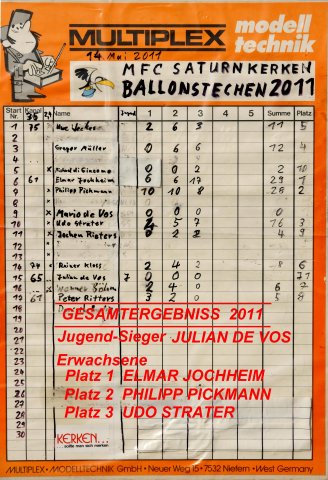 MULTIPLEX modell technik
14. Mai 2011
MFC SATURN KERKEN
BALLONSTECHEN 2011
Start Nr. Kanal Name Jugend 1 2 3 4 5 Summe Platz
35 24
1 75 2 6 3 11 5
2
3 Gregor Müller 0 6 6 12 4
4
5 x 0 0 2 2 10
6 61 Elmar Jochheim 6 6 17 29 1
7 x Philipp Pickmann 10 10 8 28 2
8
9 x Mario de Vos 0 0 0
10 x Udo Strater 5 16 3
11 x Jochen Rieters 9
12
13
14 74 x Rainer Kloss 2 4 2 8 6
15 65 x Julian de Vos 7 0 0 0
16 x Werner Böhm 2 4 0 6 7
17 61 Peter Ritters 3 2 0 5 8
18
19
20
21
22
23
24
25
26
27
28
29
30
GESAMTERGEBNISS 2011
Jugend-Sieger JULIAN DE VOS
Erwachsene
Platz 1 ELMAR JOCHHEIM
Platz 2 PHILIPP PICKMANN
Platz 3 UDO STRATER
KERKEN...
...sollte man sich merken
MULTIPLEX • MODELLTECHNIK GmbH • Neuer Weg 15 • 7532 Niefern • West Germany